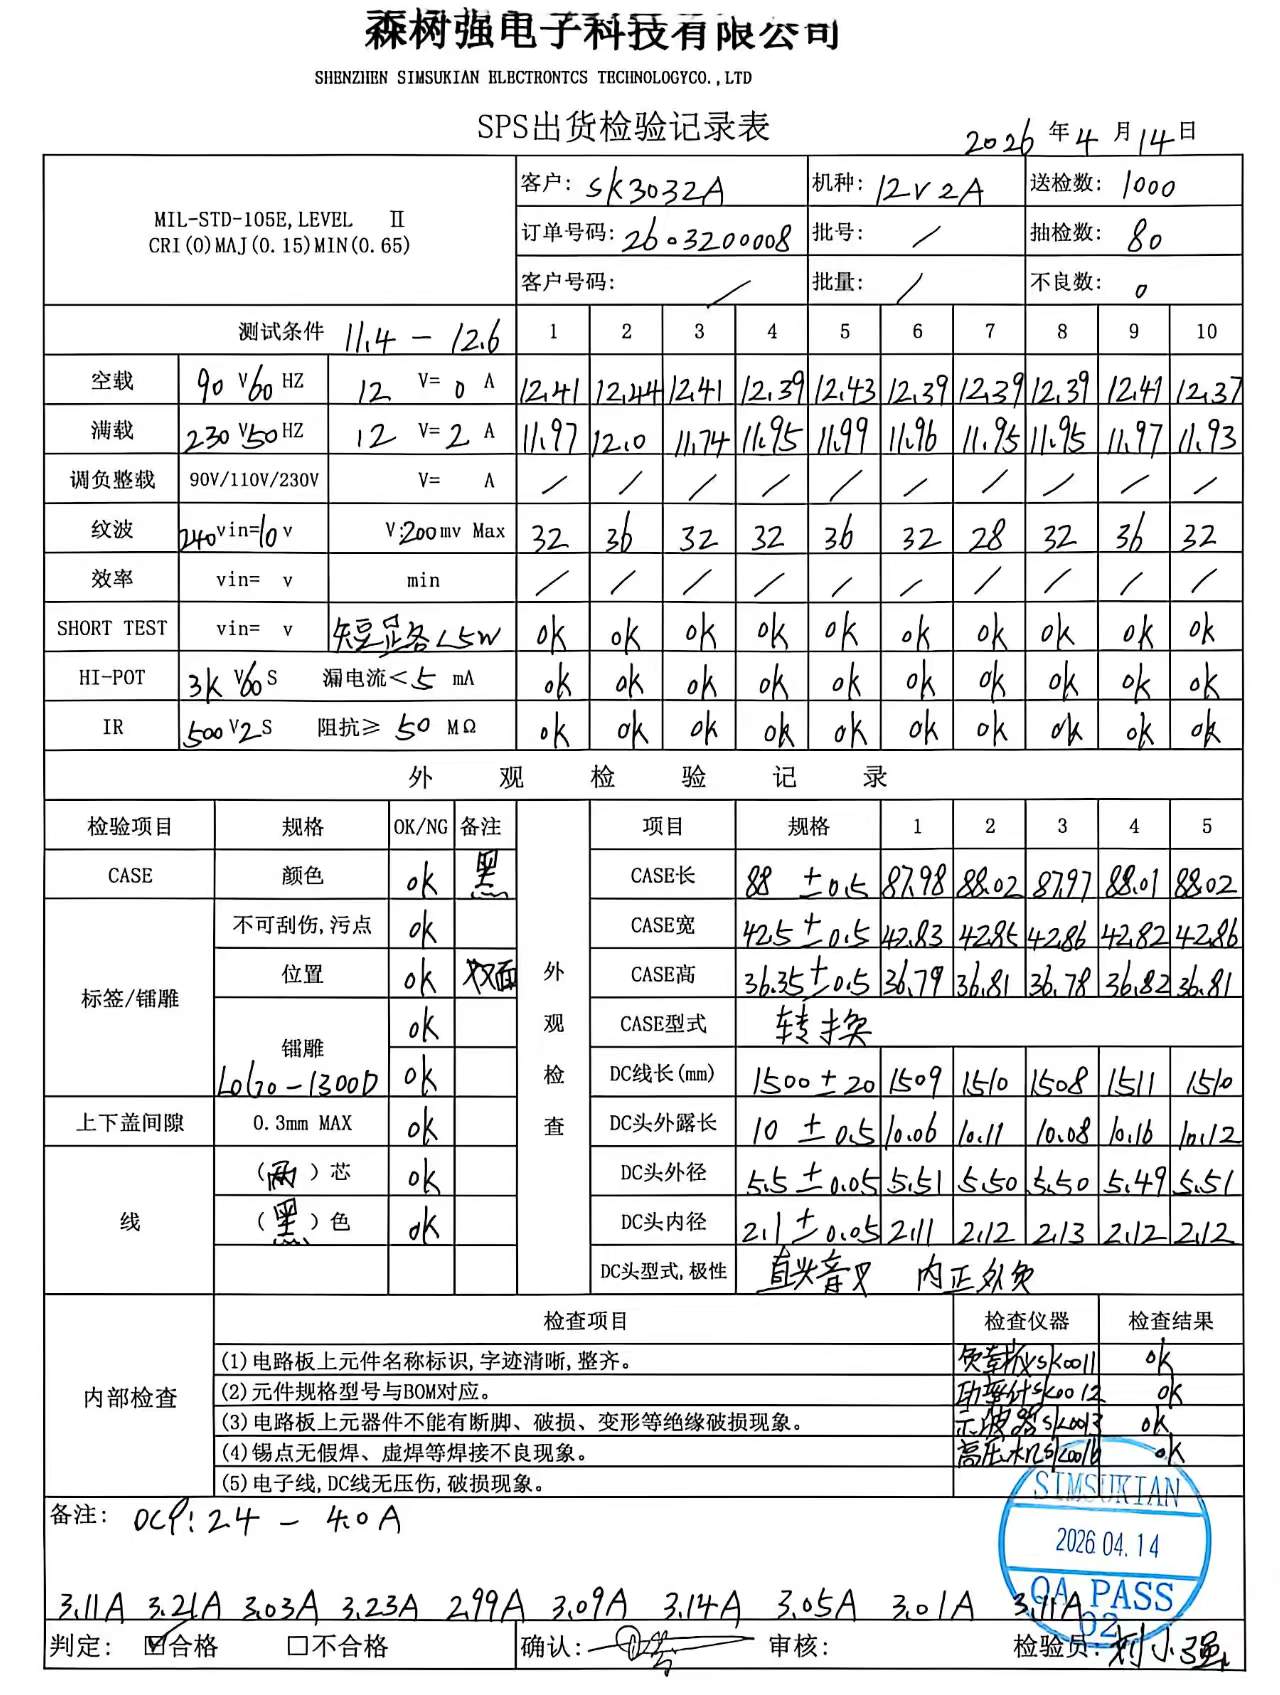 森树强电子科技有限公司
SHENZHEN SIMSUKIAN ELECTRONTCS TECHNOLOGYCO.,LTD
SPS出货检验记录表
2026 年 4 月 14 日
MIL-STD-105E,LEVEL Ⅱ
CRI(0)MAJ(0.15)MIN(0.65)
客户: SK3032A 机种: 12V2A 送检数: 1000
订单号码: 2603200008 批号: / 抽检数: 80
客户号码: / 批量: / 不良数: 0
测试条件 11.4 - 12.6 1 2 3 4 5 6 7 8 9 10
空载 90 V 60 HZ 12 V= 0 A 12.41 12.44 12.41 12.39 12.43 12.39 12.39 12.39 12.41 12.37
满载 230 V 50 HZ 12 V= 2 A 11.97 12.0 11.74 11.95 11.99 11.96 11.95 11.95 11.97 11.93
调负整载 90V/110V/230V V= A / / / / / / / / / /
纹波 240 vin=10 v V:200mv Max 32 36 32 32 36 32 28 32 36 32
效率 vin= v min / / / / / / / / / /
SHORT TEST vin= v <5W ok ok ok ok ok ok ok ok ok ok
HI-POT 3K V 60 S 漏电流< 5 mA ok ok ok ok ok ok ok ok ok ok
IR 500 V 2 S 阻抗≥ 50 MΩ ok ok ok ok ok ok ok ok ok ok
外观检验记录
检验项目 规格 OK/NG 备注 项目 规格 1 2 3 4 5
CASE 颜色 ok 黑 CASE长 88 ±0.5 87.98 88.02 87.97 88.01 88.02
标签/镭雕 不可刮伤,污点 ok CASE宽 42.5 ±0.5 42.83 42.85 42.86 42.82 42.86
位置 ok 双面 外观检查 CASE高 36.35±0.5 36.79 36.81 36.78 36.82 36.81
ok CASE型式 转换
镭雕 LOGO-1300D ok DC线长(mm) 1500±20 1509 1510 1508 1511 1510
上下盖间隙 0.3mm MAX ok DC头外露长 10 ±0.5 10.06 10.11 10.08 10.16 10.12
线 (两)芯 ok DC头外径 5.5±0.05 5.51 5.50 5.50 5.49 5.51
(黑)色 ok DC头内径 2.1±0.05 2.11 2.12 2.13 2.12 2.12
DC头型式,极性 直头音叉 内正外负
内部检查 检查项目 检查仪器 检查结果
(1)电路板上元件名称标识,字迹清晰,整齐。 负载仪SK0011 ok
(2)元件规格型号与BOM对应。 功率计SK0012 ok
(3)电路板上元器件不能有断脚、破损、变形等绝缘破损现象。 示波器SK0013 ok
(4)锡点无假焊、虚焊等焊接不良现象。 高压机SK0016 ok
(5)电子线,DC线无压伤,破损现象。
SIMSUKIAN
2026.04.14
QA PASS
02
备注: OCP: 2.4 - 4.0A
3.11A 3.21A 3.03A 3.23A 2.99A 3.09A 3.14A 3.05A 3.01A 3.11A
判定: ☑合格 □不合格 确认: 审核: 检验员: 刘小强